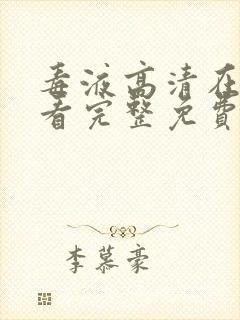 毒液高清在
看完整免費
李慕豪